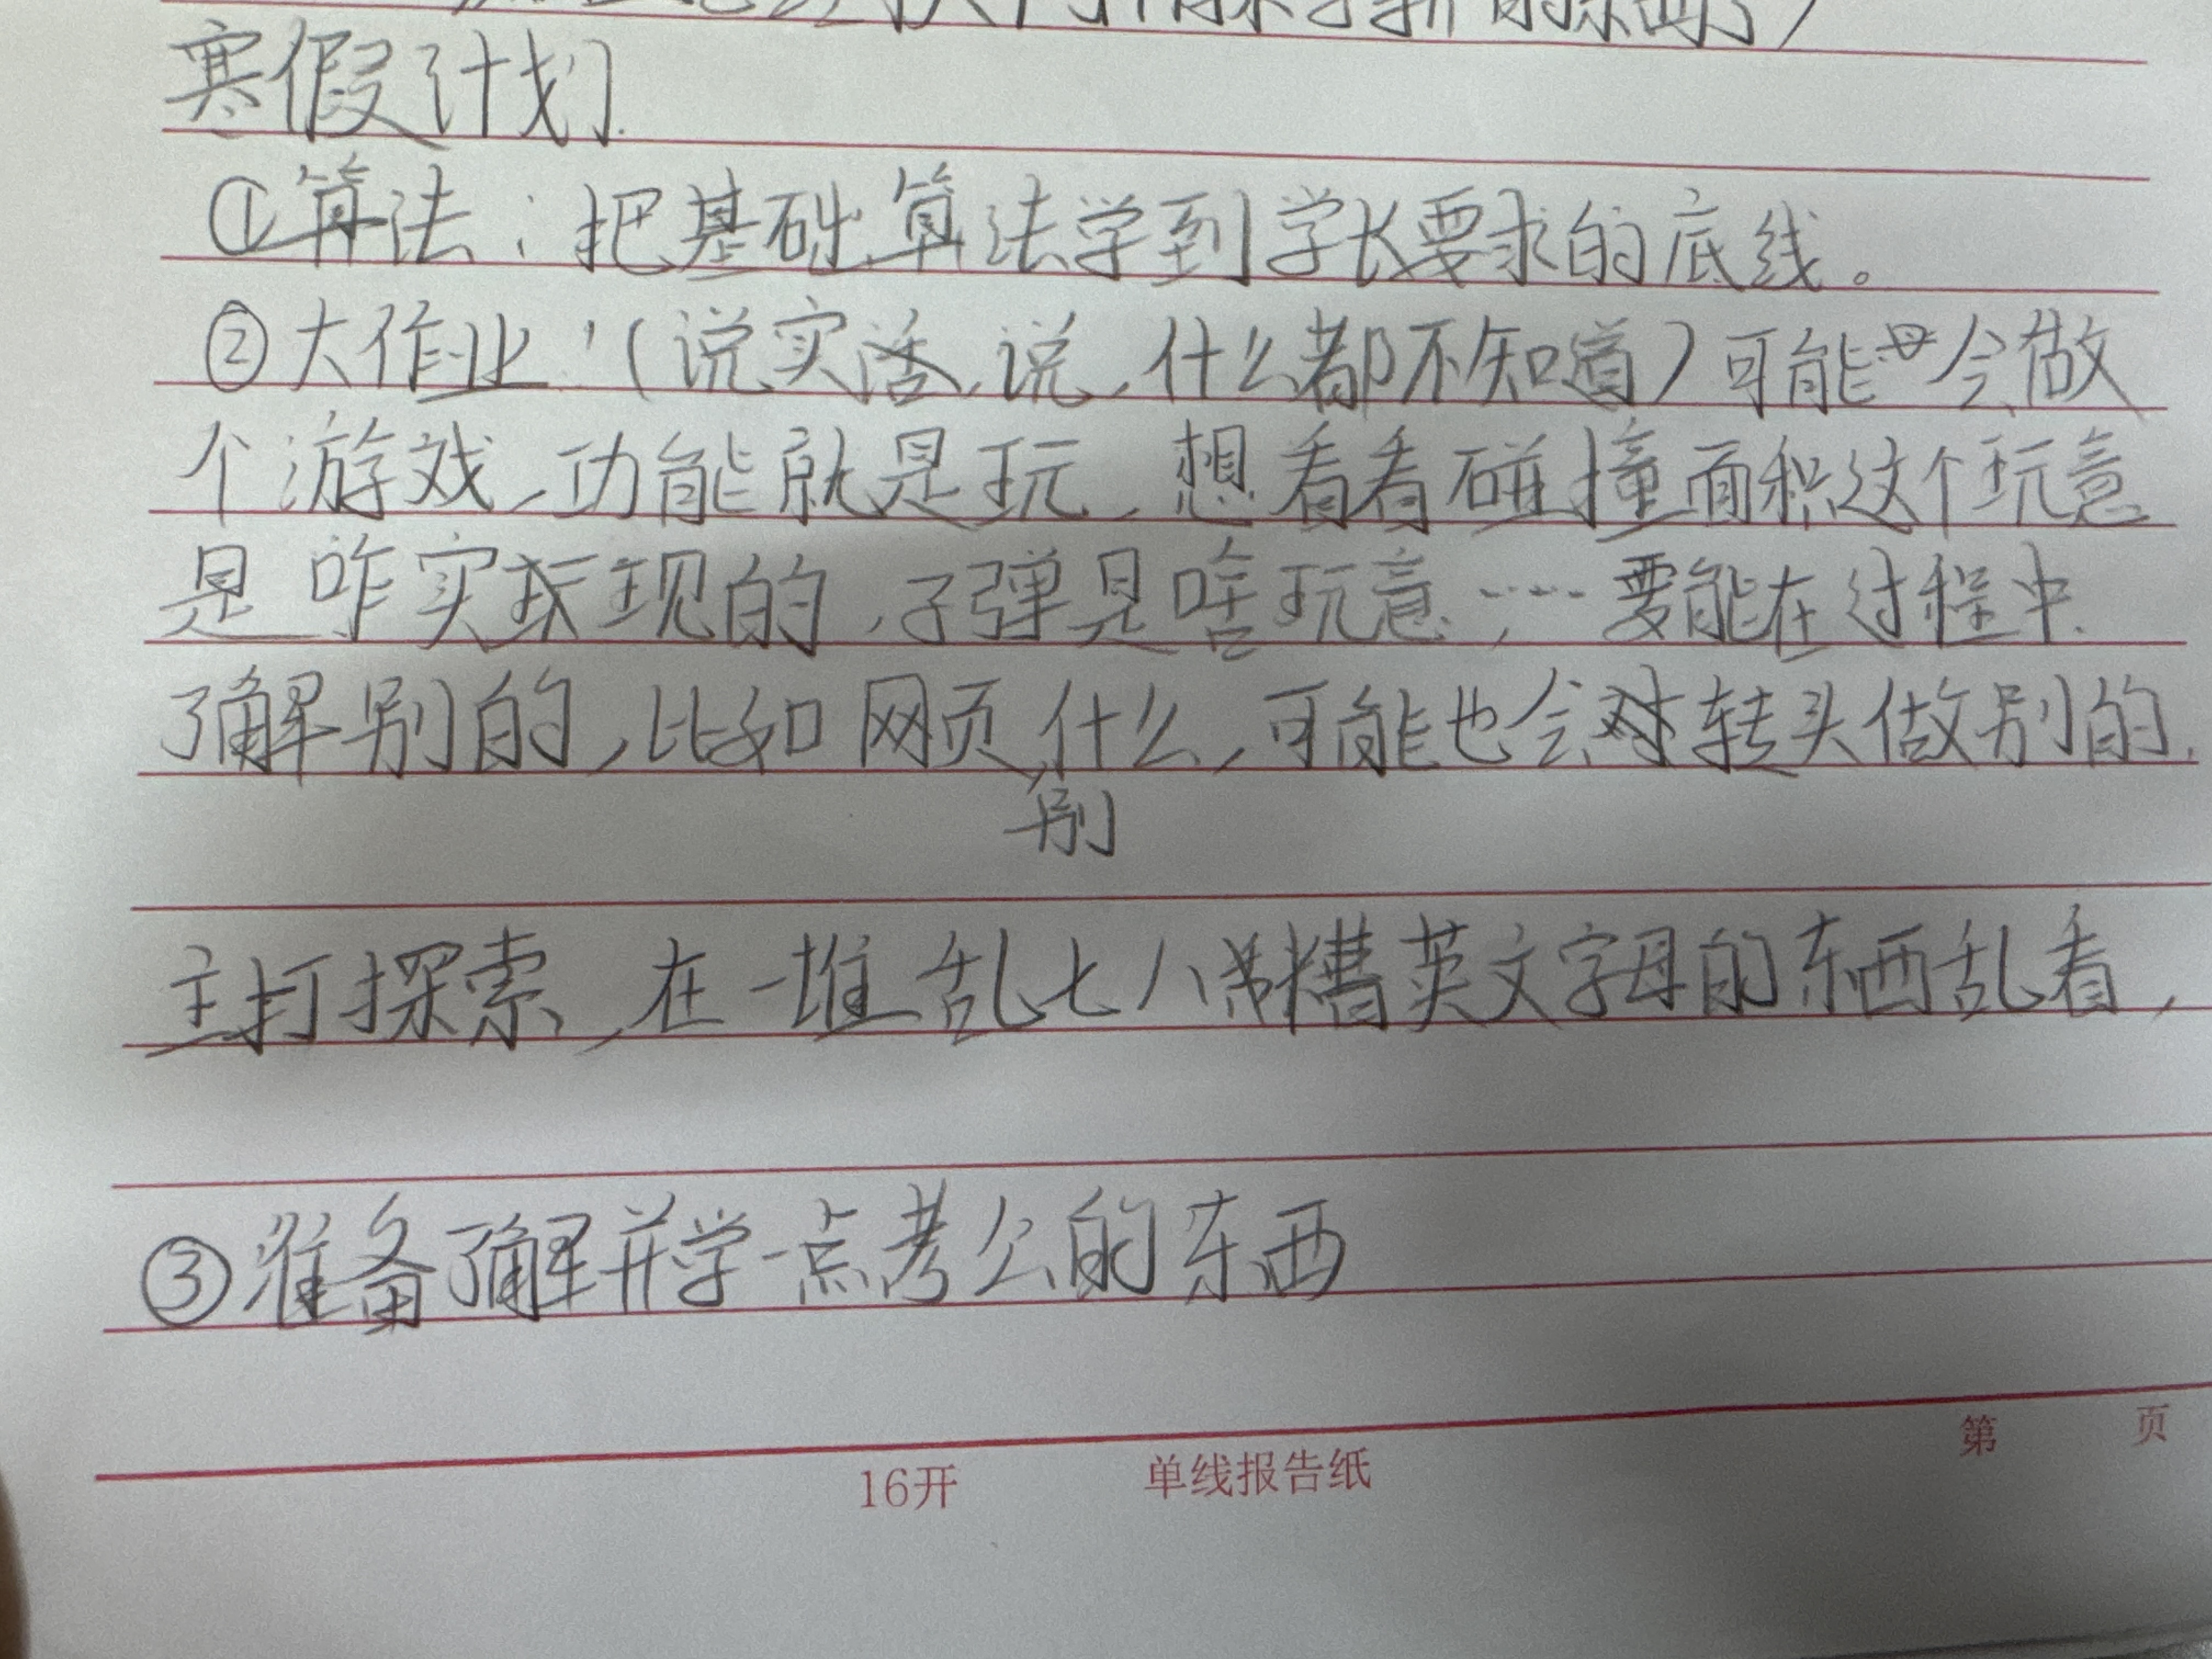 寒假计划.
①算法:把基础算法学到学长要求的底线。
②大作业:(说实话,说,什么都不知道)可能会做
个游戏,功能就是玩,想看看碰撞面积这个玩意
是咋实现的,子弹是啥玩意……要能在过程中
了解别的,比如网页,什么,可能也会转头做别的.
别
主打探索,在一堆乱七八糟英文字母的东西乱看,
③准备了解并学一点考公的东西
16开 单线报告纸 第 页